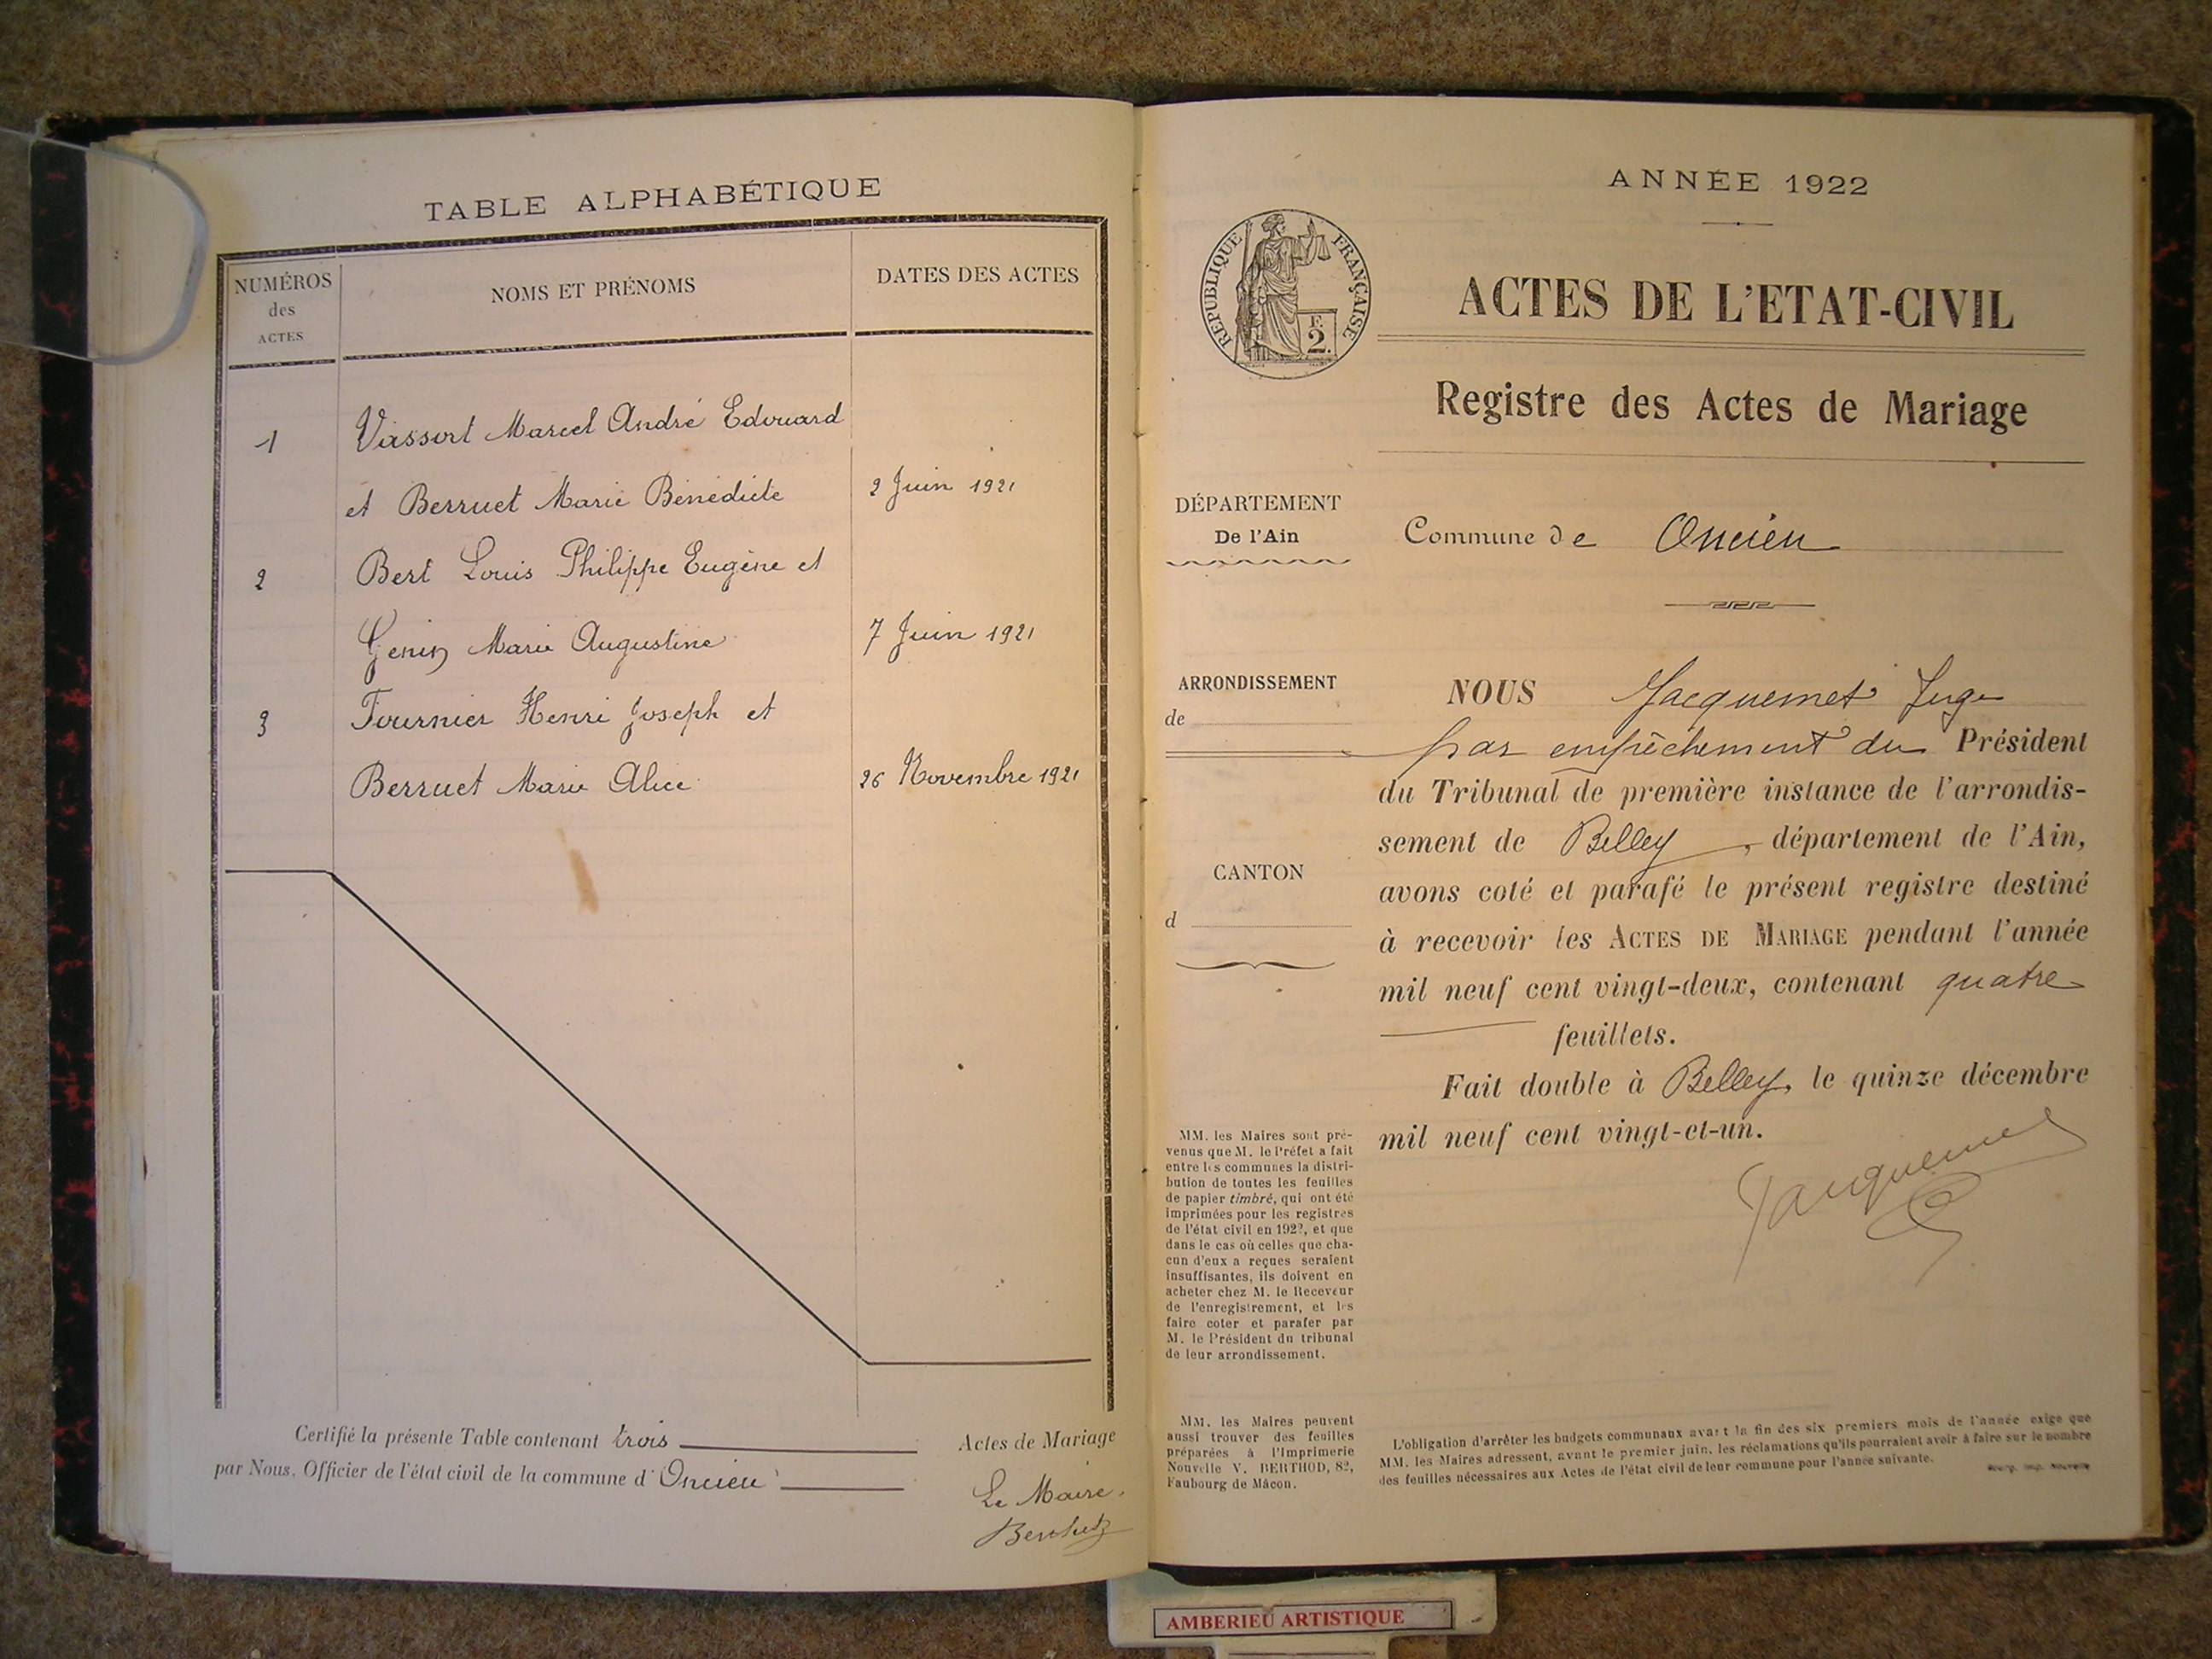 TABLE ALPHABÉTIQUE
NUMÉROS
des
ACTES
NOMS ET PRÉNOMS
DATES DES ACTES
1 Vassort Marcel André Edouard
et Berruet Marie Bénédicte 2 Juin 1921
2 Bert Louis Philippe Eugène et
Genin Marie Augustine 7 Juin 1921
3 Fournier Henri Joseph et
Berruet Marie Alice 26 Novembre 1921
Certifié la présente Table contenant trois Actes de Mariage
par Nous, Officier de l'état civil de la commune d'Oncieu
Le Maire.
ANNÉE 1922
RÉPUBLIQUE FRANÇAISE
F.
2.
ACTES DE L'ETAT-CIVIL
Registre des Actes de Mariage
DÉPARTEMENT
De l'Ain
Commune de Oncieu
ARRONDISSEMENT
de
CANTON
d
NOUS Jacquemet Juge
par empêchement du Président
du Tribunal de première instance de l'arrondis-
sement de Belley, département de l'Ain,
avons coté et parafé le présent registre destiné
à recevoir les ACTES DE MARIAGE pendant l'année
mil neuf cent vingt-deux, contenant quatre
feuillets.
Fait double à Belley, le quinze décembre
mil neuf cent vingt-et-un.
Jacquemet
MM. les Maires sont pré-
venus que M. le Préfet a fait
entre les communes la distri-
bution de toutes les feuilles
de papier timbré, qui ont été
imprimées pour les registres
de l'état civil en 1922, et que
dans le cas où celles que cha-
cun d'eux a reçues seraient
insuffisantes, ils doivent en
acheter chez M. le Receveur
de l'enregistrement, et les
faire coter et parafer par
M. le Président du tribunal
de leur arrondissement.
MM. les Maires peuvent
aussi trouver des feuilles
préparées à l'Imprimerie
Nouvelle V. BERTHOD, 82,
Faubourg de Mâcon.
L'obligation d'arrêter les budgets communaux avant la fin des six premiers mois de l'année exige que
MM. les Maires adressent, avant le premier juin, les réclamations qu'ils pourraient avoir à faire sur le nombre
des feuilles nécessaires aux Actes de l'état civil de leur commune pour l'année suivante.
Bourg, Imp. Nouvelle
AMBERIEU ARTISTIQUE